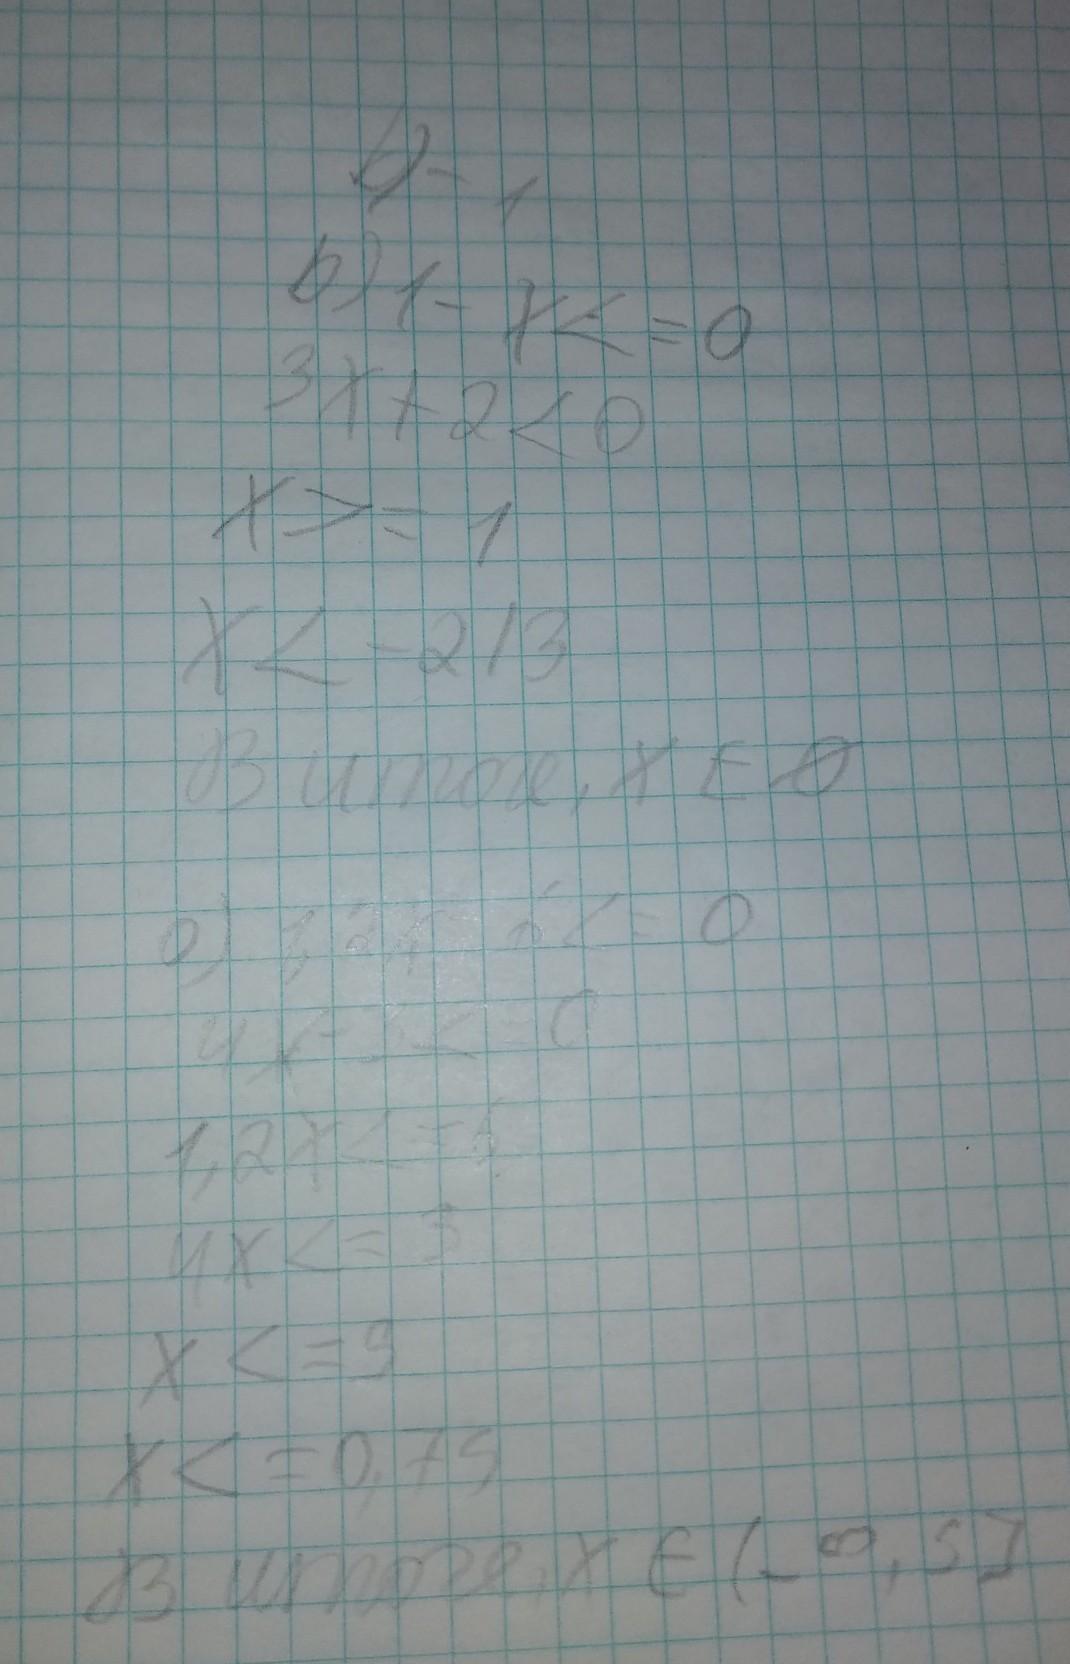 b) - 1
b) 1 - x <= 0
3x + 2 < 0
x >= 1
x < -2/3
В итоге, x ∈ ∅
а) 1,2x - 6 <= 0
4x - 3 <= 0
1,2x <= 6
4x <= 3
x <= 5
x <= 0,75
В итоге, x ∈ (-∞, 5]